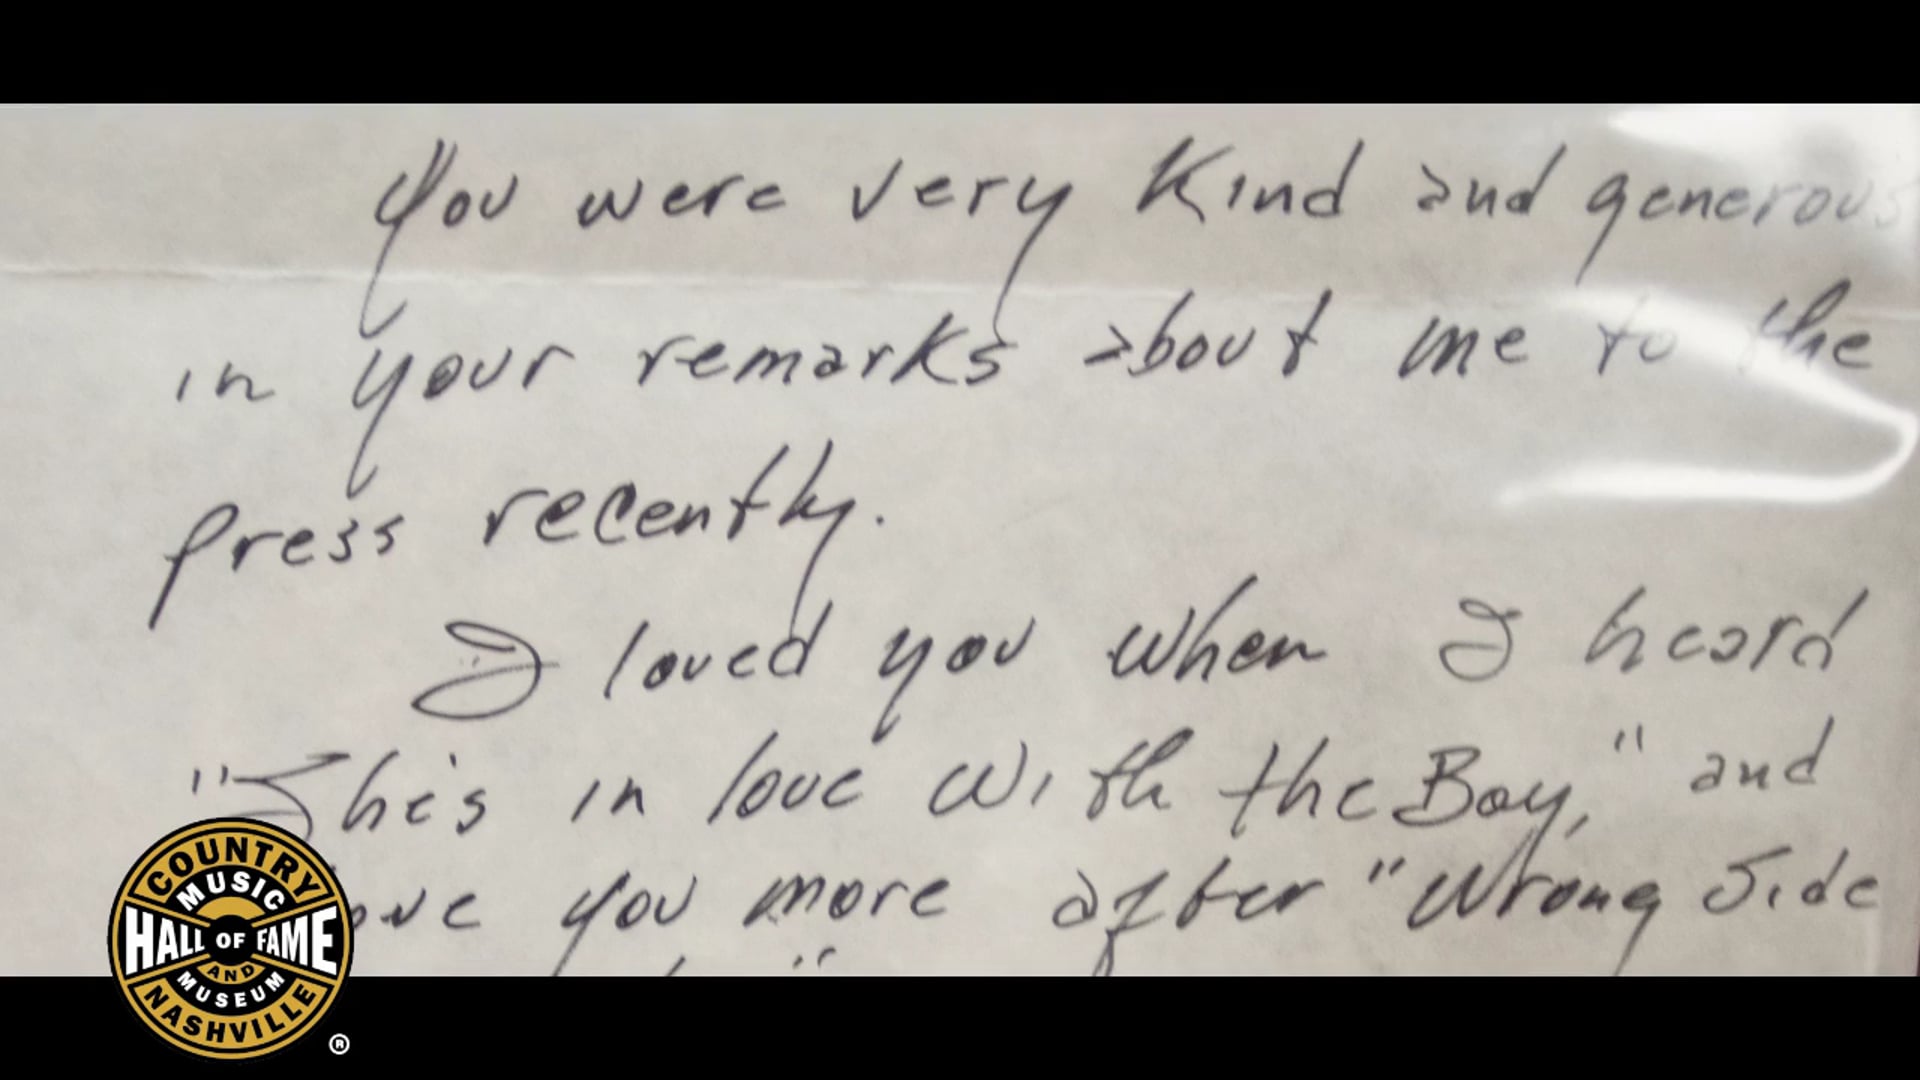 You were very Kind and generous
in your remarks about me to the
press recently.
I loved you when I heard
"She's in love With the Boy," and
you more after "Wrong Side
COUNTRY
MUSIC
HALL OF FAME
AND
MUSEUM
NASHVILLE
®